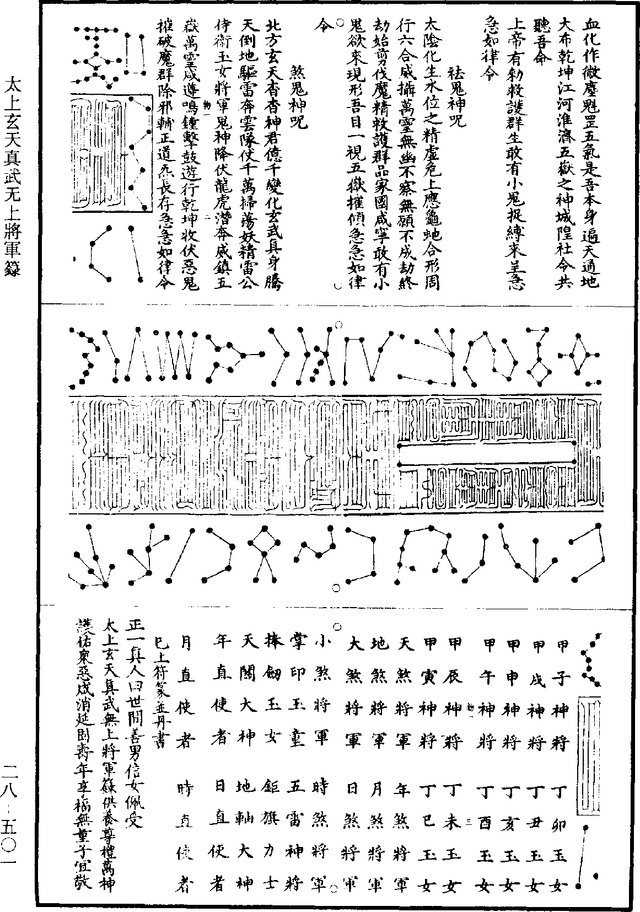 血化作微塵魁罡五氣是吾本身遍天通地
大布乾坤江河淮濟五嶽之神城隍社令共
聽吾命
上帝有勑救護群生敢有小鬼捉縛來呈急
急如律令
祛鬼神呪
太陰化生水位之精虛危上應龜虵合形周
行六合威攝萬靈無幽不察無願不成劫終
劫始剪伐魔精救護群品家國咸寧敢有小
鬼欲來現形吾目一視五嶽摧傾急急如律
令
煞鬼神呪
北方玄天杳杳神君億千變化玄武真身騰
天倒地驅雷奔雲隊仗千萬掃蕩妖精雷公
侍衛玉女將軍鬼神降伏龍虎潛奔威鎮五
嶽萬靈咸遵鳴鍾擊鼓遊行乾坤收伏惡鬼
摧破魔群除邪輔正道炁長存急急如律令
甲子神將 丁卯玉女
甲戌神將 丁丑玉女
甲申神將 丁亥玉女
甲午神將 丁酉玉女
甲辰神將 丁未玉女
甲寅神將 丁巳玉女
天煞將軍 年煞將軍
地煞將軍 月煞將軍
大煞將軍 日煞將軍
小煞將軍 時煞將軍
掌印玉童 五雷神將
捧劒玉女 鉅旗力士
天關大神 地軸大神
年直使者 日直使者
月直使者 時直使者
已上符篆並丹書
正一真人曰世間善男信女佩受
太上玄天真武無上將軍籙供養尊禮萬神
護佑衆惡咸消延固壽年享福無量子宜敬
太上玄天真武无上將軍籙
二八-五〇一